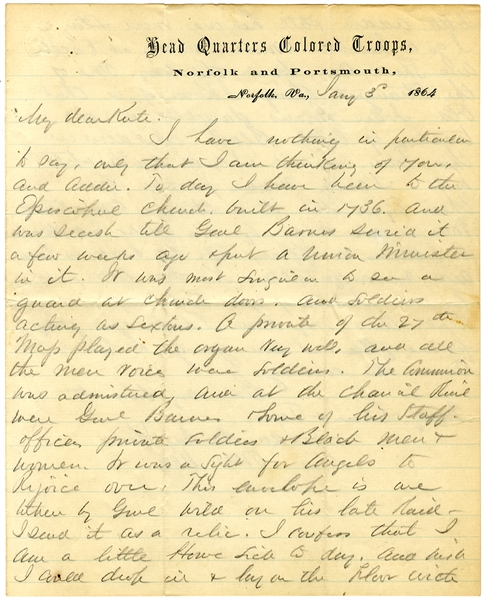 Head Quarters Colored Troops,
Norfolk and Portsmouth,
Norfolk, Va., Jany 3d 1864
My dear Kate.
I have nothing in particular
to say, only that I am thinking of you,
and Addie. To day I have been to the
Episcopal Church, built in 1736. and
was secesh till Genl Barnes seized it
a few weeks ago & put a Union Minister
in it. It was most singular to see a
guard at church door. and soldiers
acting as sextons. A private of the 27th
Mass played the organ very well, and all
the men voices were soldiers. The Communion
was administered, and at the chancel rail
were Genl Barnes & some of his staff-
officers, private soldiers & Black men &
women. It was a sight for Angels to
rejoice over. This envelope is one
taken by Genl Wild on his late raid-
I send it as a relic. I confess that I
am a little Home Sick to day. and wish
I could drop in & lay on the floor with